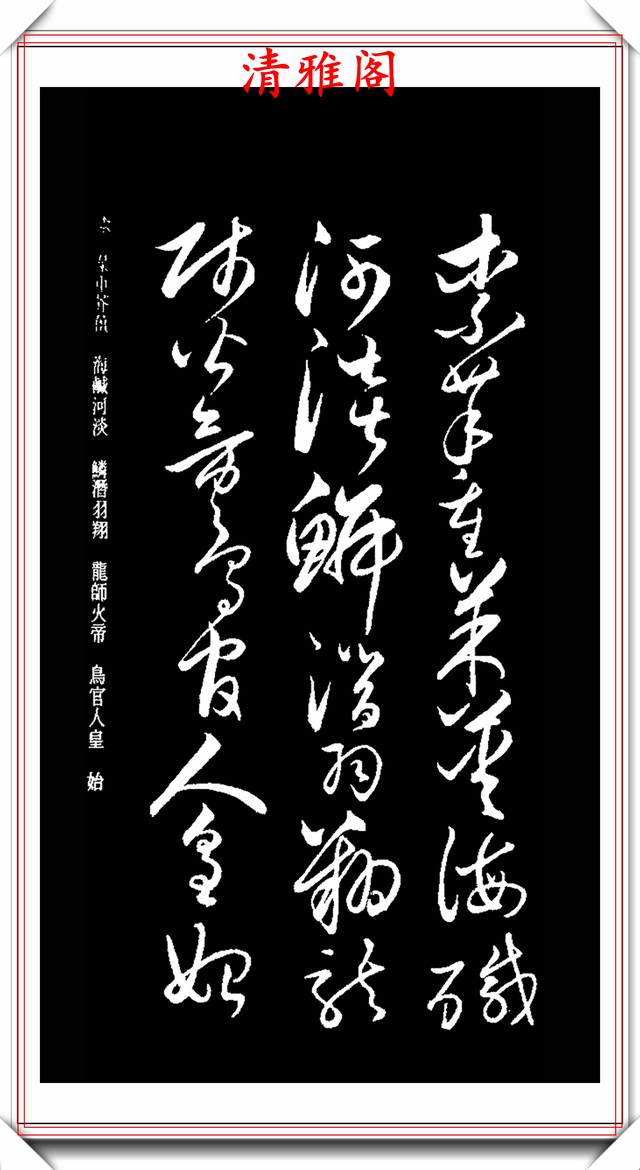 清雅阁
柰菜重芥薑海鹹
河淡鱗潛羽翔龍
師火帝鳥官人皇始
柰 菜重芥薑 海鹹河淡 鱗潛羽翔 龍師火帝 鳥官人皇 始